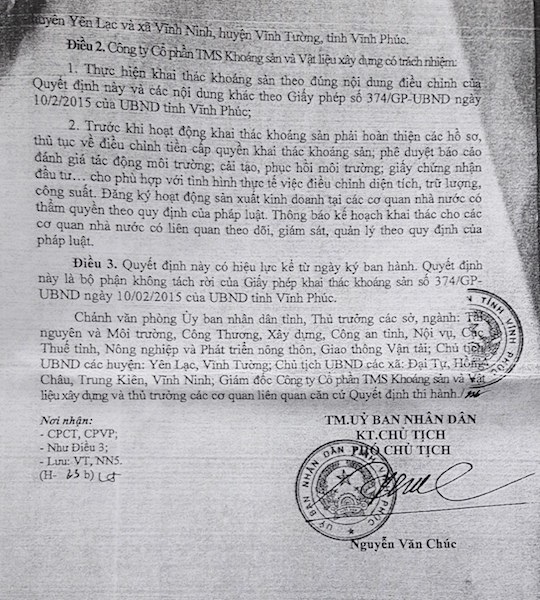 huyện Yên Lạc và xã Vĩnh Ninh, huyện Vĩnh Tường, tỉnh Vĩnh Phúc.
Điều 2. Công ty Cổ phần TMS Khoáng sản và Vật liệu xây dựng có trách nhiệm:
1. Thực hiện khai thác khoáng sản theo đúng nội dung điều chỉnh của
Quyết định này và các nội dung khác theo Giấy phép số 374/GP-UBND ngày
10/2/2015 của UBND tỉnh Vĩnh Phúc;
2. Trước khi hoạt động khai thác khoáng sản phải hoàn thiện các hồ sơ,
thủ tục về điều chỉnh tiền cấp quyền khai thác khoáng sản; phê duyệt báo cáo
đánh giá tác động môi trường; cải tạo, phục hồi môi trường; giấy chứng nhận
đầu tư… cho phù hợp với tình hình thực tế việc điều chỉnh diện tích, trữ lượng,
công suất. Đăng ký hoạt động sản xuất kinh doanh tại các cơ quan nhà nước có
thẩm quyền theo quy định của pháp luật. Thông báo kế hoạch khai thác cho các
cơ quan nhà nước có liên quan theo dõi, giám sát, quản lý theo quy định của
pháp luật.
Điều 3. Quyết định này có hiệu lực kể từ ngày ký ban hành. Quyết định
này là bộ phận không tách rời của Giấy phép khai thác khoáng sản số 374/GP-
UBND ngày 10/02/2015 của UBND tỉnh Vĩnh Phúc.
Chánh văn phòng Ủy ban nhân dân tỉnh, Thủ trưởng các sở, ngành: Tài
nguyên và Môi trường, Công Thương, Xây dựng, Công an tỉnh, Nội vụ, Cục
Thuế tỉnh, Nông nghiệp và Phát triển nông thôn, Giao thông Vận tải; Chủ tịch
UBND các huyện: Yên Lạc, Vĩnh Tường; Chủ tịch UBND các xã: Đại Tự, Hồng
Châu, Trung Kiên, Vĩnh Ninh; Giám đốc Công ty Cổ phần TMS Khoáng sản và Vật
liệu xây dựng và thủ trưởng các cơ quan liên quan căn cứ Quyết định thi hành./.
TỈNH VĨNH PHÚC
Nơi nhận:
- CPCT, CPVP;
- Như Điều 3;
- Lưu: VT, NN5.
(H- 25 b)
TM.UỶ BAN NHÂN DÂN
KT.CHỦ TỊCH
PHÓ CHỦ TỊCH
ỦY BAN NHÂN DÂN TỈNH VĨNH PHÚC
Nguyễn Văn Chúc